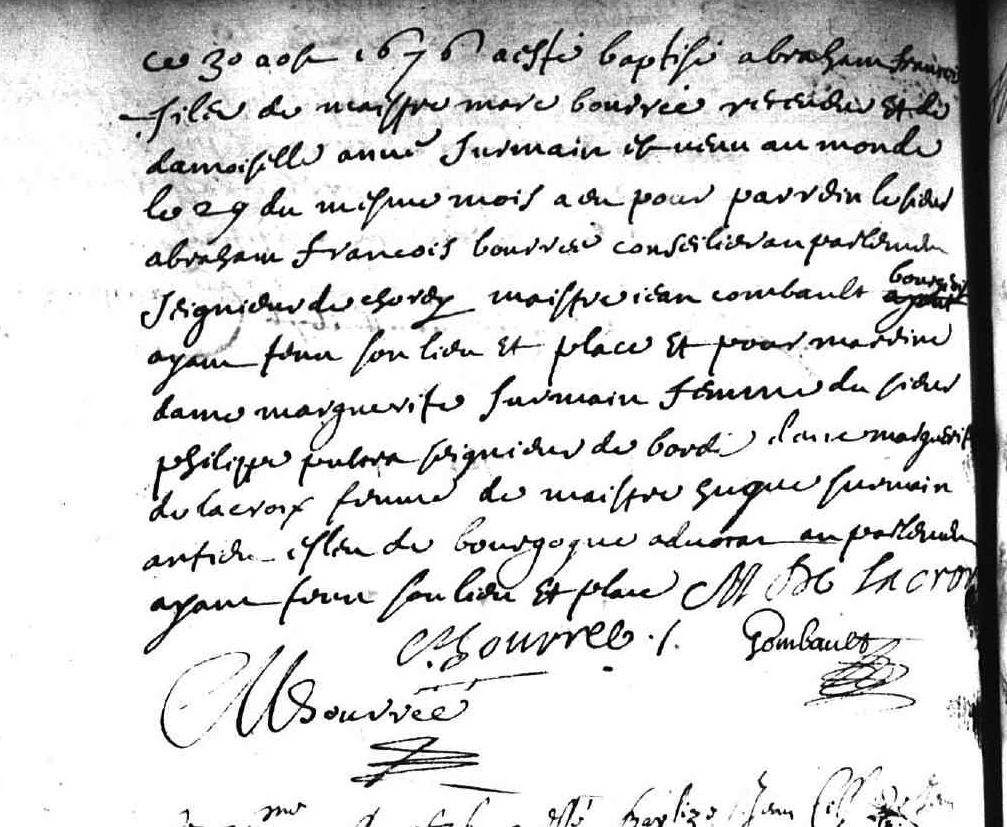 ce 30 aost 1676 a esté baptisé abraham francois
fils de maistre marc bourrée receveur et de
damoiselle anne Surmain est venu au monde
le 29 du mesme mois a eu pour parrein le sieur
abraham francois bourree conseilier au parlement
seigneur de chorey maistre iean combault
ayant tenu son lieu et place et pour marrine
dame marguerite surmain femme du sieur
philippe seigneur de dame marguerite
de lacroix femme de maistre hugue surmain
antien esleu de bourgogne advocat au parlement
ayant tenu son lieu et place M De lacroix
Bourree Gombault
M Bourrée
esté baptizé Jean